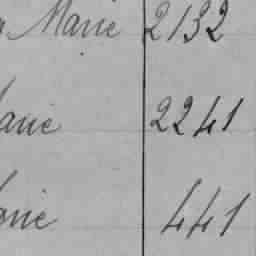 Marie 2132
arie 2241
arie 441